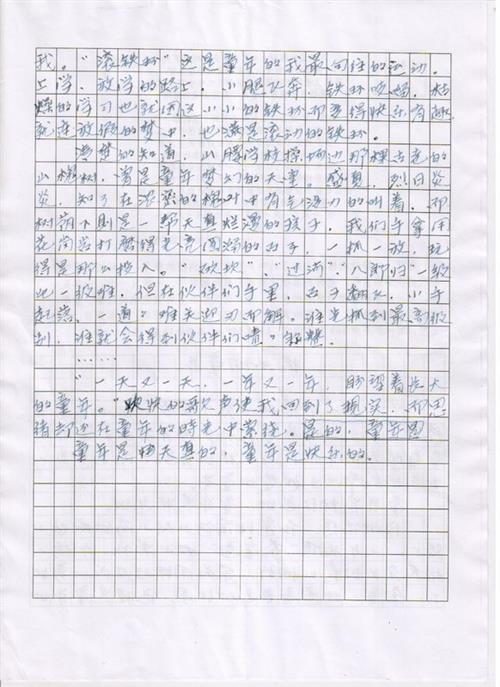 我。"滚铁环"这是童年的我最向往的运动。
上学、放学的路上,小腿飞奔,铁环吹鸣,枯
燥的学习也就因这小小的铁环而变得快乐有趣,
就连放假的梦中,也滚是滚动的铁环。
的知道,山腰学校操场边那棵古老的
山楂树,曾是童年梦幻的天堂。盛夏,烈日炎
炎,知了在浓密的树叶中有气无力的叫着,而
树荫下则是一帮天真烂漫的孩子,我们手拿用
花岗岩打磨得光亮圆滑的石子,一抓一放,玩
得是那么投入。"砍坎"、"过河"、"八郎归"一级
比一级难,但在伙伴们手里,石子翻飞,小手
起落,一道道难关迎刃而解。谁先抓到最高级
别,谁就会得到伙伴们啧啧称赞。
……
"一天又一天,一年又一年,盼望着长大
的童年。"欢快的歌声使我回到了现实,而思
绪却仍在童年的时光中萦绕。是的,童年是
童年是天真的,童年是快乐的。